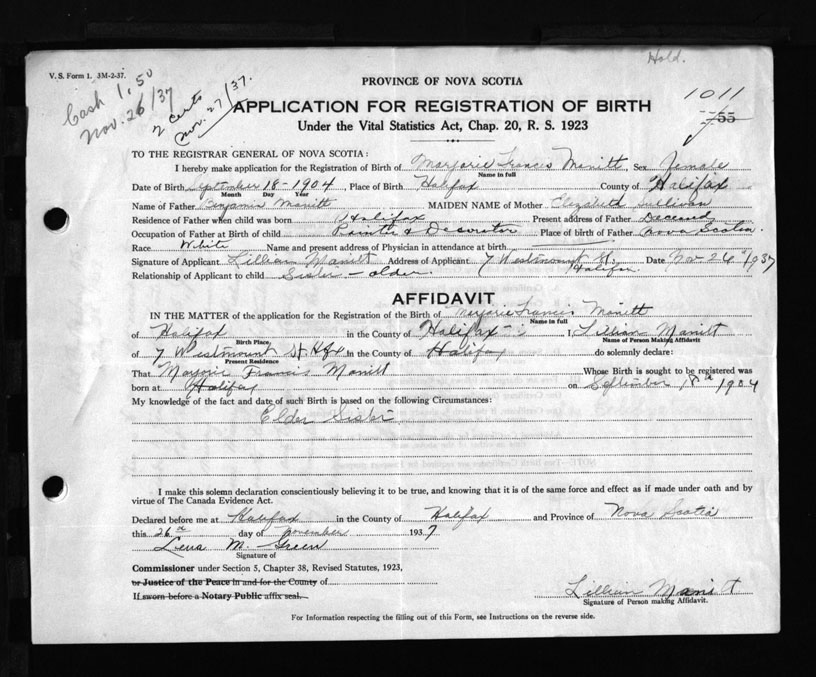 Hold.
V. S. Form 1. 3M-2-37.
Cash 1.50
Nov. 26/37
2 certs
Nov. 27/37.
PROVINCE OF NOVA SCOTIA
1011
APPLICATION FOR REGISTRATION OF BIRTH
755
Under the Vital Statistics Act, Chap. 20, R. S. 1923
TO THE REGISTRAR GENERAL OF NOVA SCOTIA:
I hereby make application for the Registration of Birth of Marjorie Francis Manitt, Sex female
Name in full
Date of Birth September 18-1904, Place of Birth Halifax County of Halifax
Month Day Year
Name of Father Benjamin Manitt MAIDEN NAME of Mother Elizabeth Sullivan
Residence of Father when child was born Halifax Present address of Father Deceased
Occupation of Father at Birth of child Painter & Decorator Place of birth of Father Nova Scotia
Race White Name and present address of Physician in attendance at birth
Signature of Applicant Lillian Manitt Address of Applicant 7 Westmount St. Halifax Date Nov 26th 1937
Relationship of Applicant to child Sister - older.
AFFIDAVIT
IN THE MATTER of the application for the Registration of the Birth of Marjorie Francis Manitt
Name in full
of Halifax in the County of Halifax I, Lillian Manitt
Birth Place. Name of Person Making Affidavit
of 7 Westmount St Hfx in the County of Halifax do solemnly declare:
Present Residence
That Marjorie Francis Manitt Whose Birth is sought to be registered was
born at Halifax on September 18th 1904
My knowledge of the fact and date of such Birth is based on the following Circumstances:
Elder Sister
I make this solemn declaration conscientiously believing it to be true, and knowing that it is of the same force and effect as if made under oath and by
virtue of The Canada Evidence Act.
Declared before me at Halifax in the County of Halifax and Province of Nova Scotia
this 26th day of November 1937
Lena M. Green
Signature of
Commissioner under Section 5, Chapter 38, Revised Statutes, 1923,
or Justice of the Peace in and for the County of
If sworn before a Notary Public affix seal.
Lillian Manitt
Signature of Person making Affidavit.
For Information respecting the filling out of this Form, see Instructions on the reverse side.